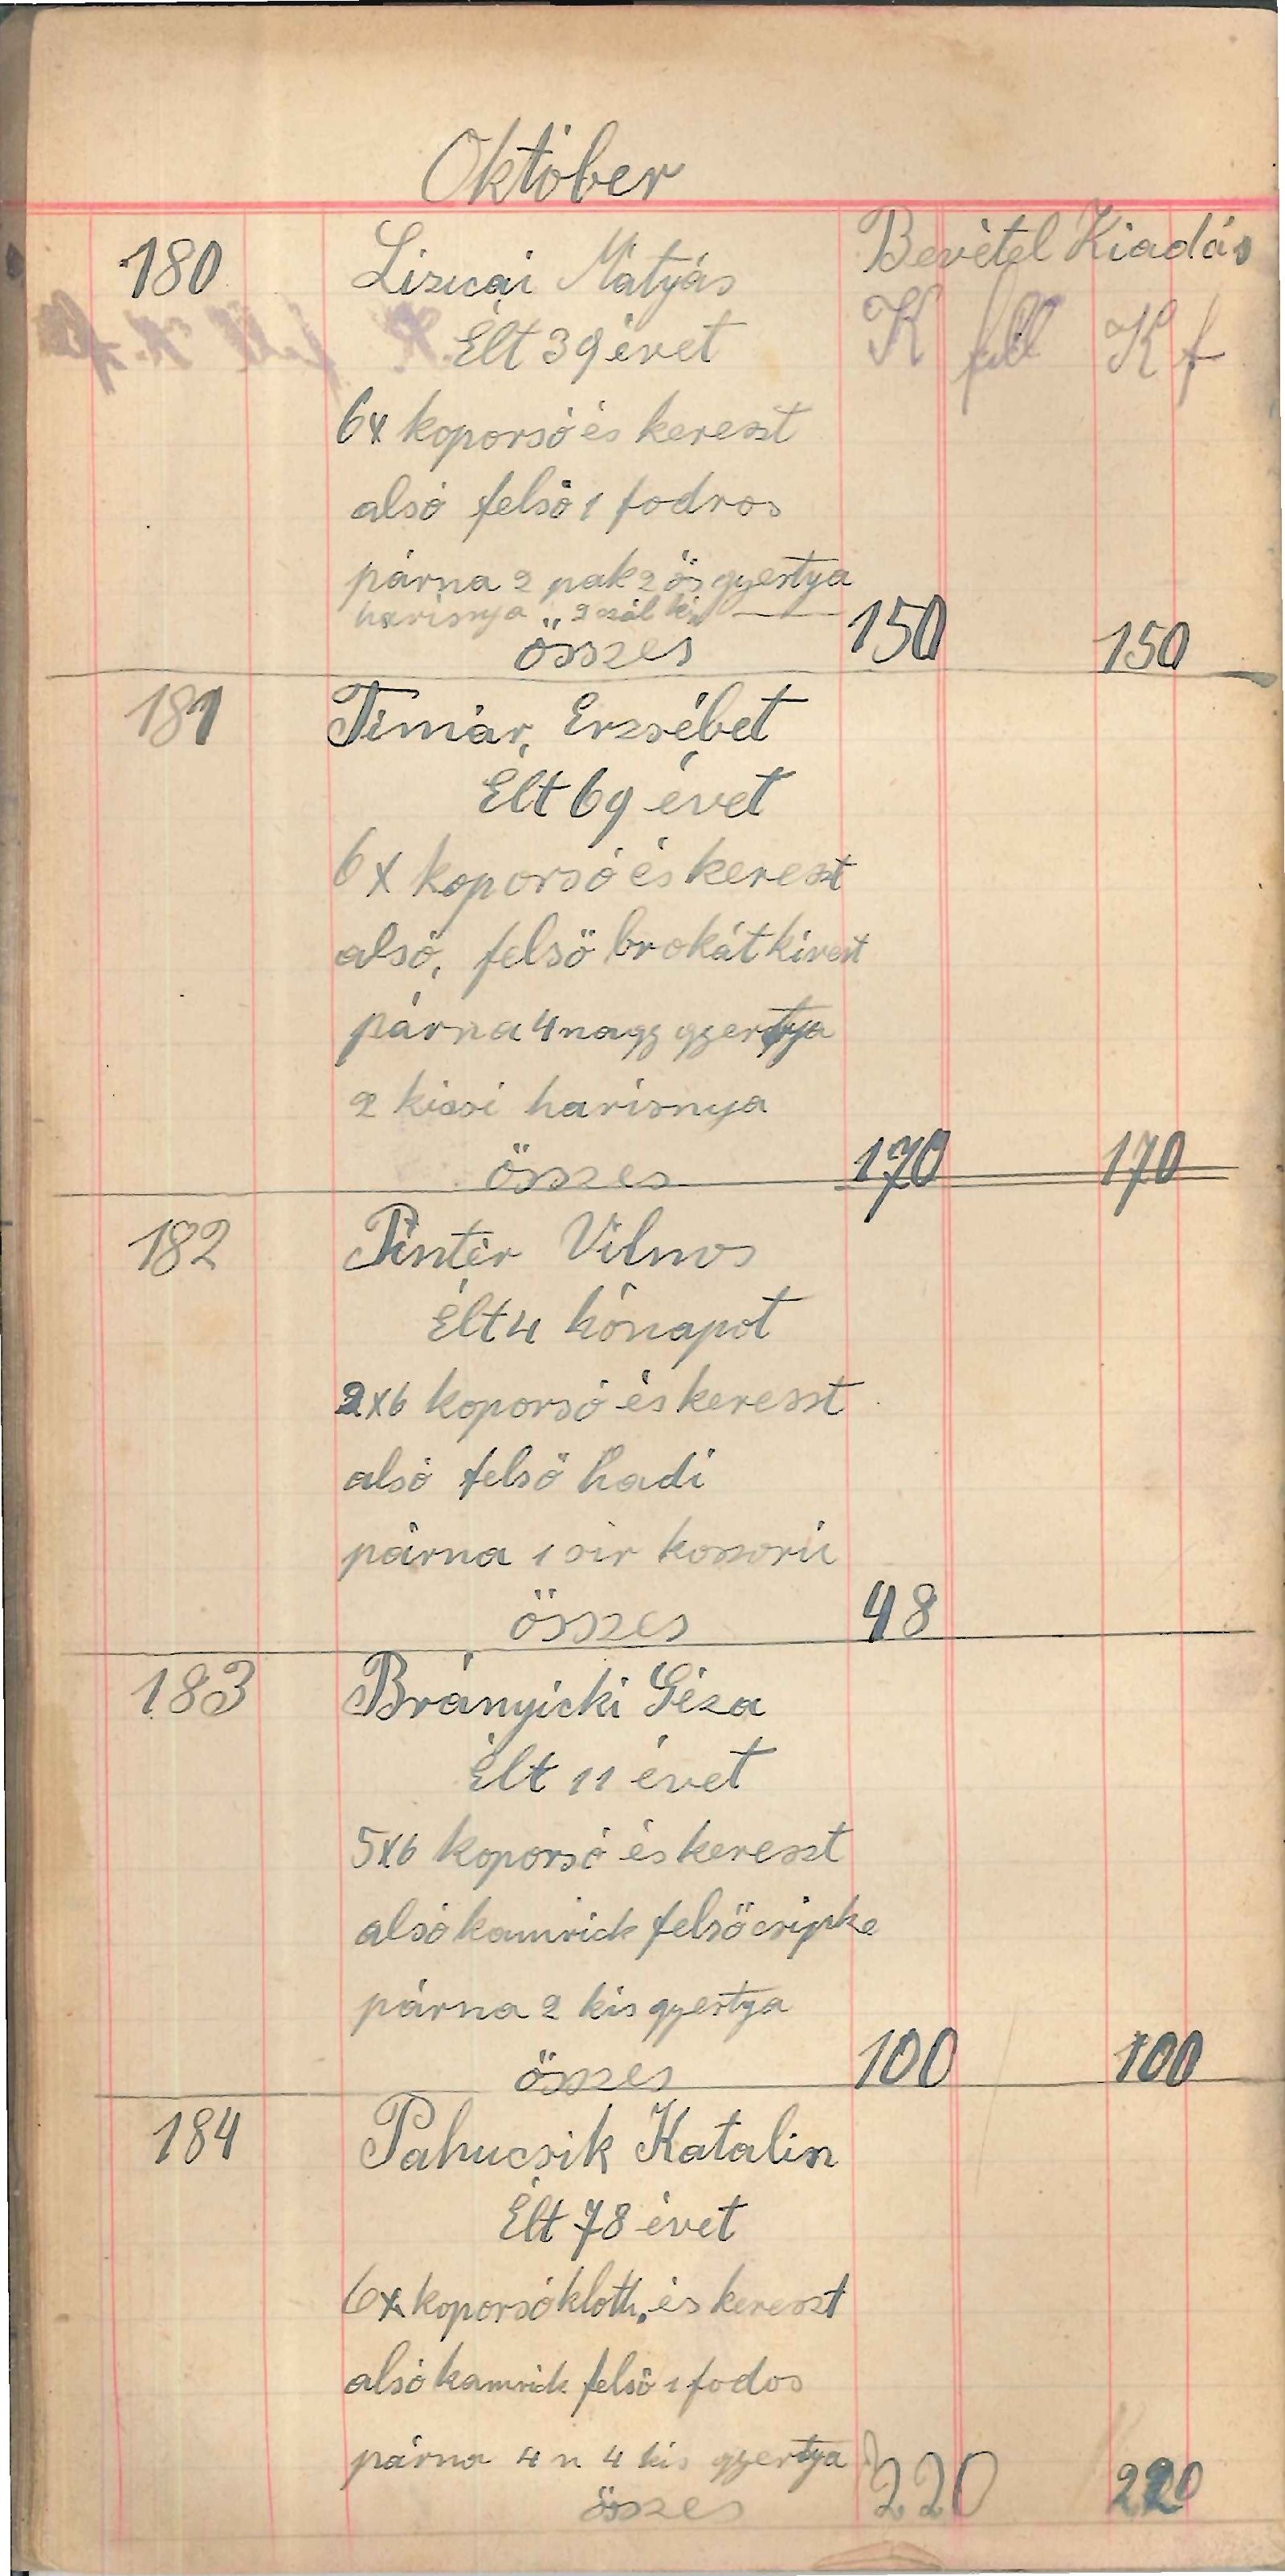 Október
Bevétel Kiadás
180 Lizucai Mátyás
K fill K f
Élt 39 évet
6x koporsó és kereszt
alsó felsö 1 fodros
párna 2 pak 2 ös gyertya
harisnya " 2 szál kis
összes 150 150
181 Timár, Erzsébet
Élt 69 évet
6x koporsó és kereszt
alsö, felsö brokát kivert
párna 4 nagy gyertya
2 kissi harisnya
összes 170 170
182 Pintér Vilmos
Élt 4 hónapot
2x6 koporsó és kereszt
alsó felsö hadi
párna 1 sir kossorú
összes 48
183 Brányicki Géza
Élt 11 évet
5x6 koporsó és kereszt
alsó kamrick felsö csipke
párna 2 kis gyertya
összes 100 100
184 Pahucsik Katalin
Élt 78 évet
6x koporsó kloth. és kereszt
alsó kamrick felsö 1 fodos
párna 4 n 4 kis gyertya
összes 220 220